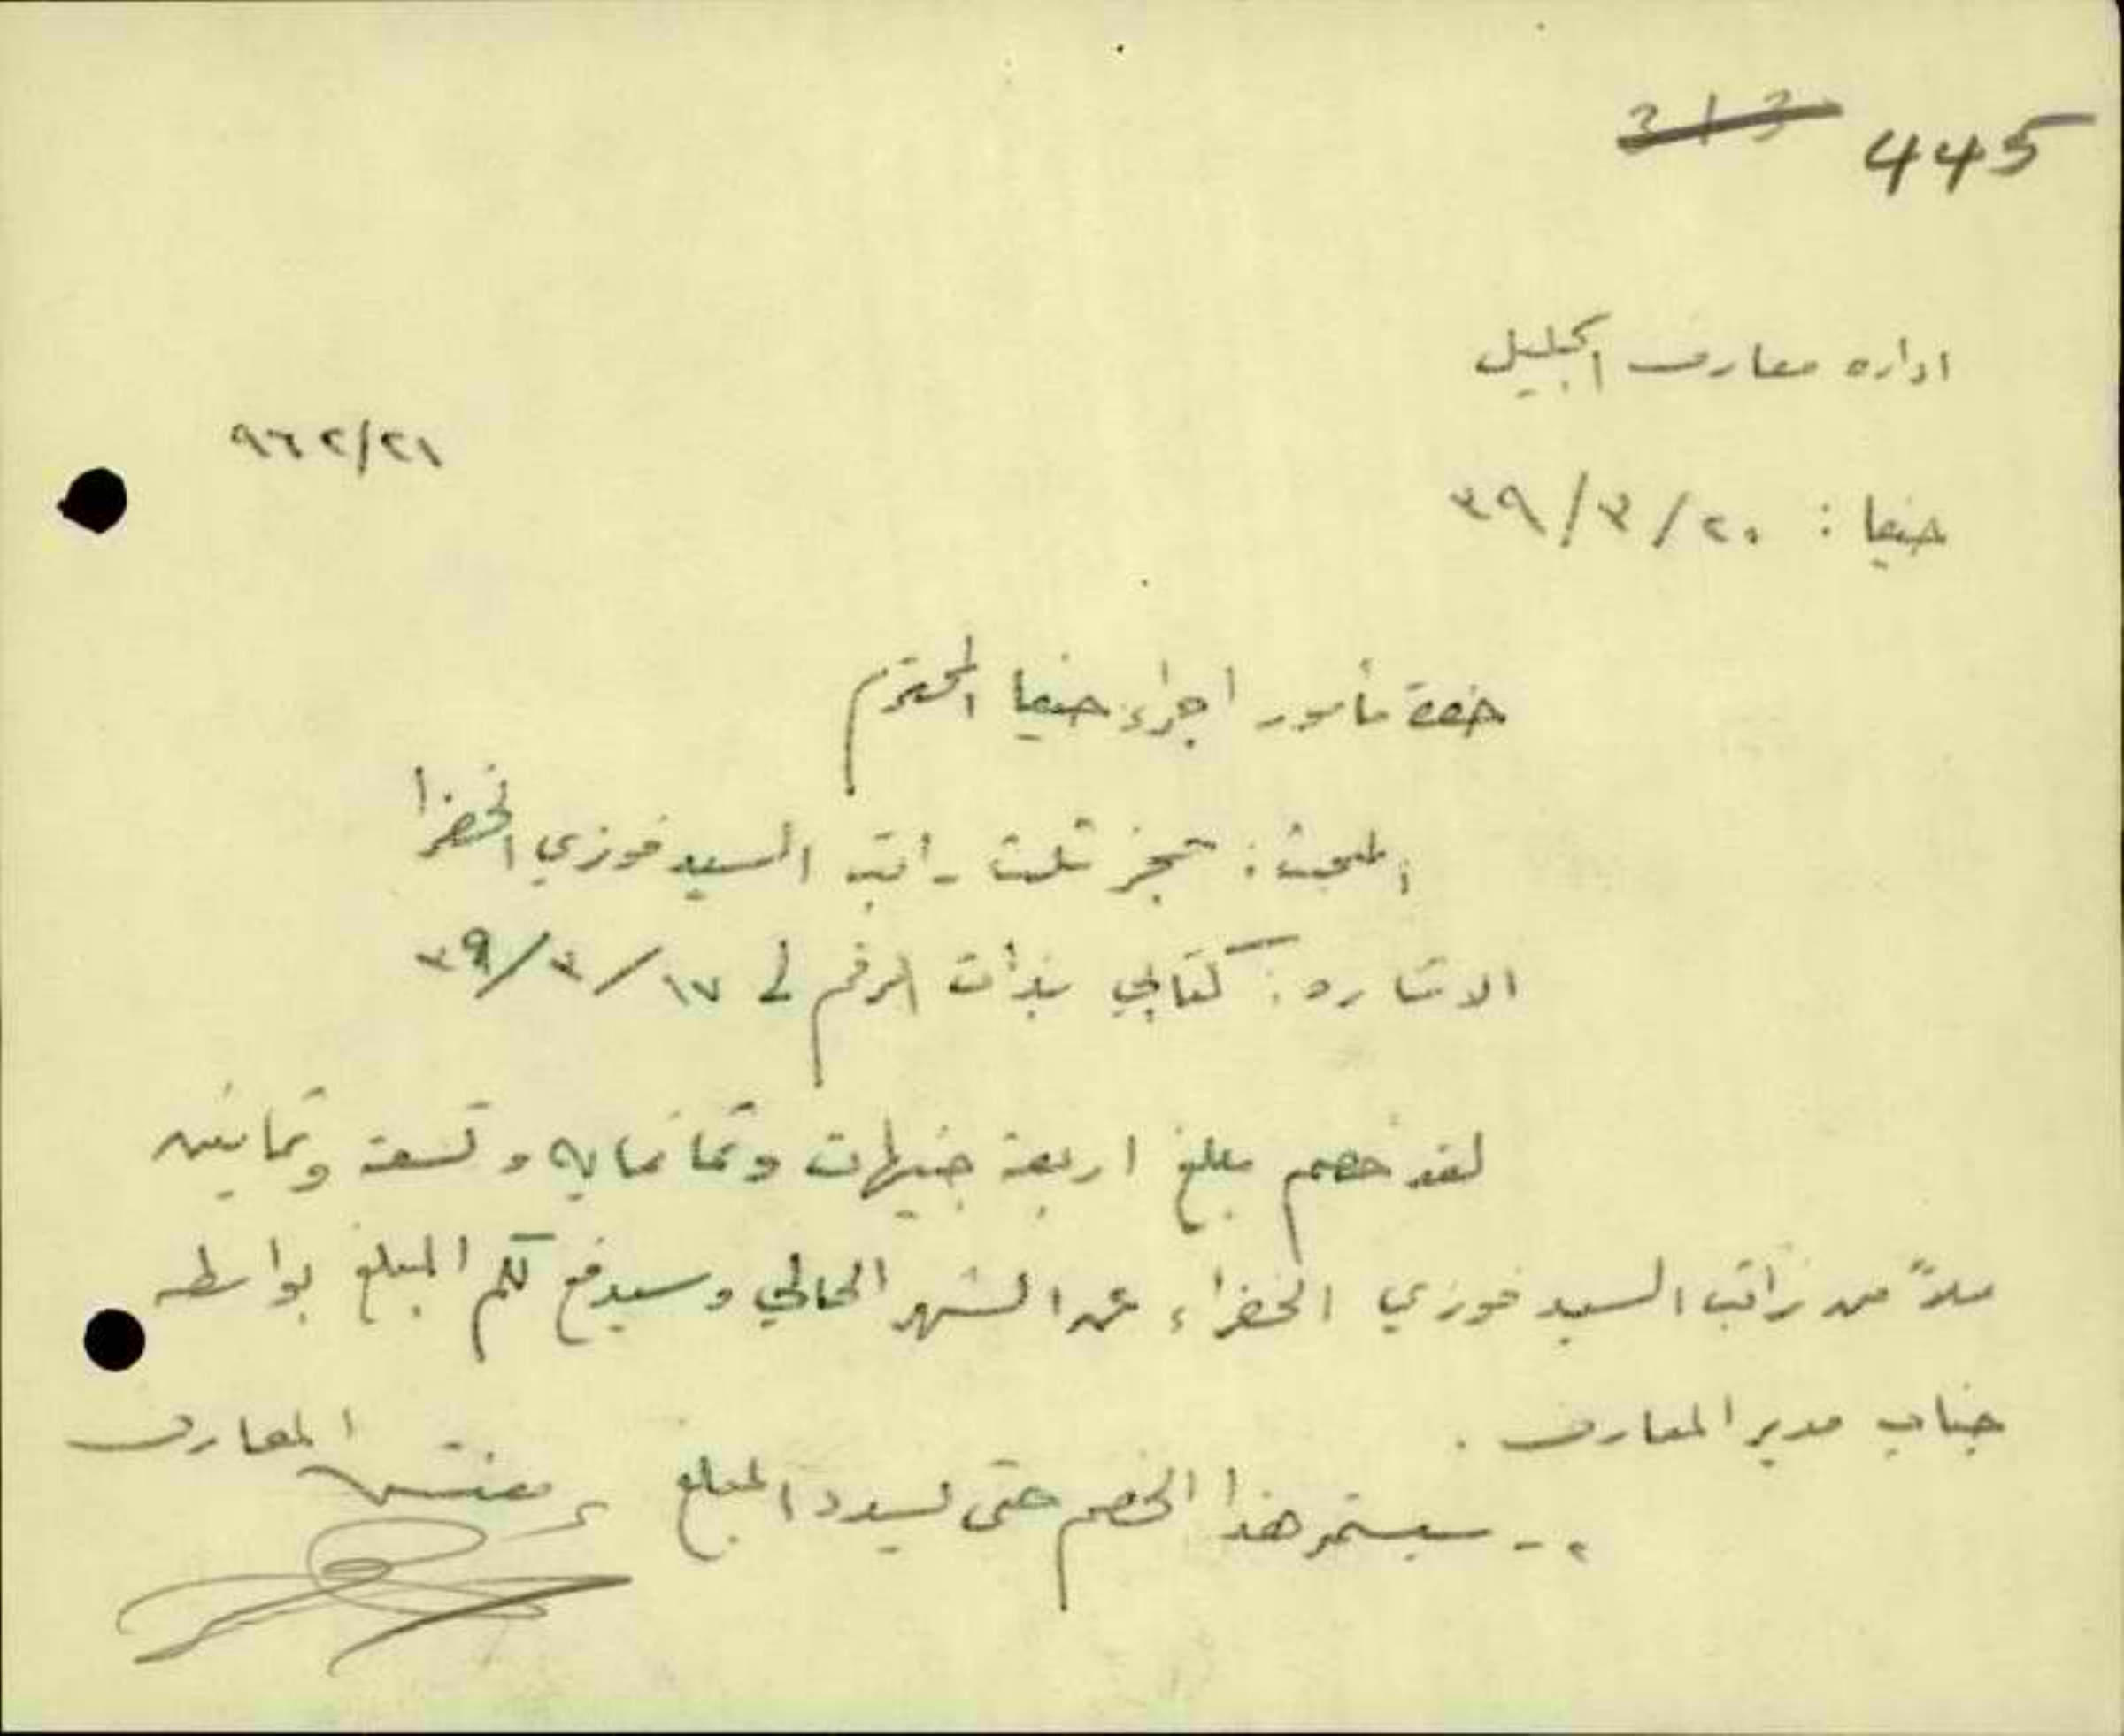 313 445
اداره معارف الجليل
٩٦٢/٢١
حيفا : ٢٠/٣/٣٩
حضرة مأمور اجراء حيفا المحترم
المبحث : حجز ثلث راتب السيد فوزي الخضرا
الاشاره : كتابي بذات الرقم في ١٧/٣/٣٩
لقد خصم مبلغ اربعة جنيهات وثمانمايه وتسعة وثمانين
ملاً من راتب السيد فوزي الخضراء عن الشهر الحالي وسيدفع لكم المبلغ بواسطه
جناب مدير المعارف .
٢ - سيستمر هذا الخصم حتى تسديد المبلغ
مفتش المعارف